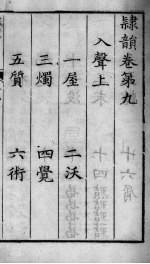 隸韻卷第九
入聲上
一屋 二沃
三燭 四覺
五質 六術